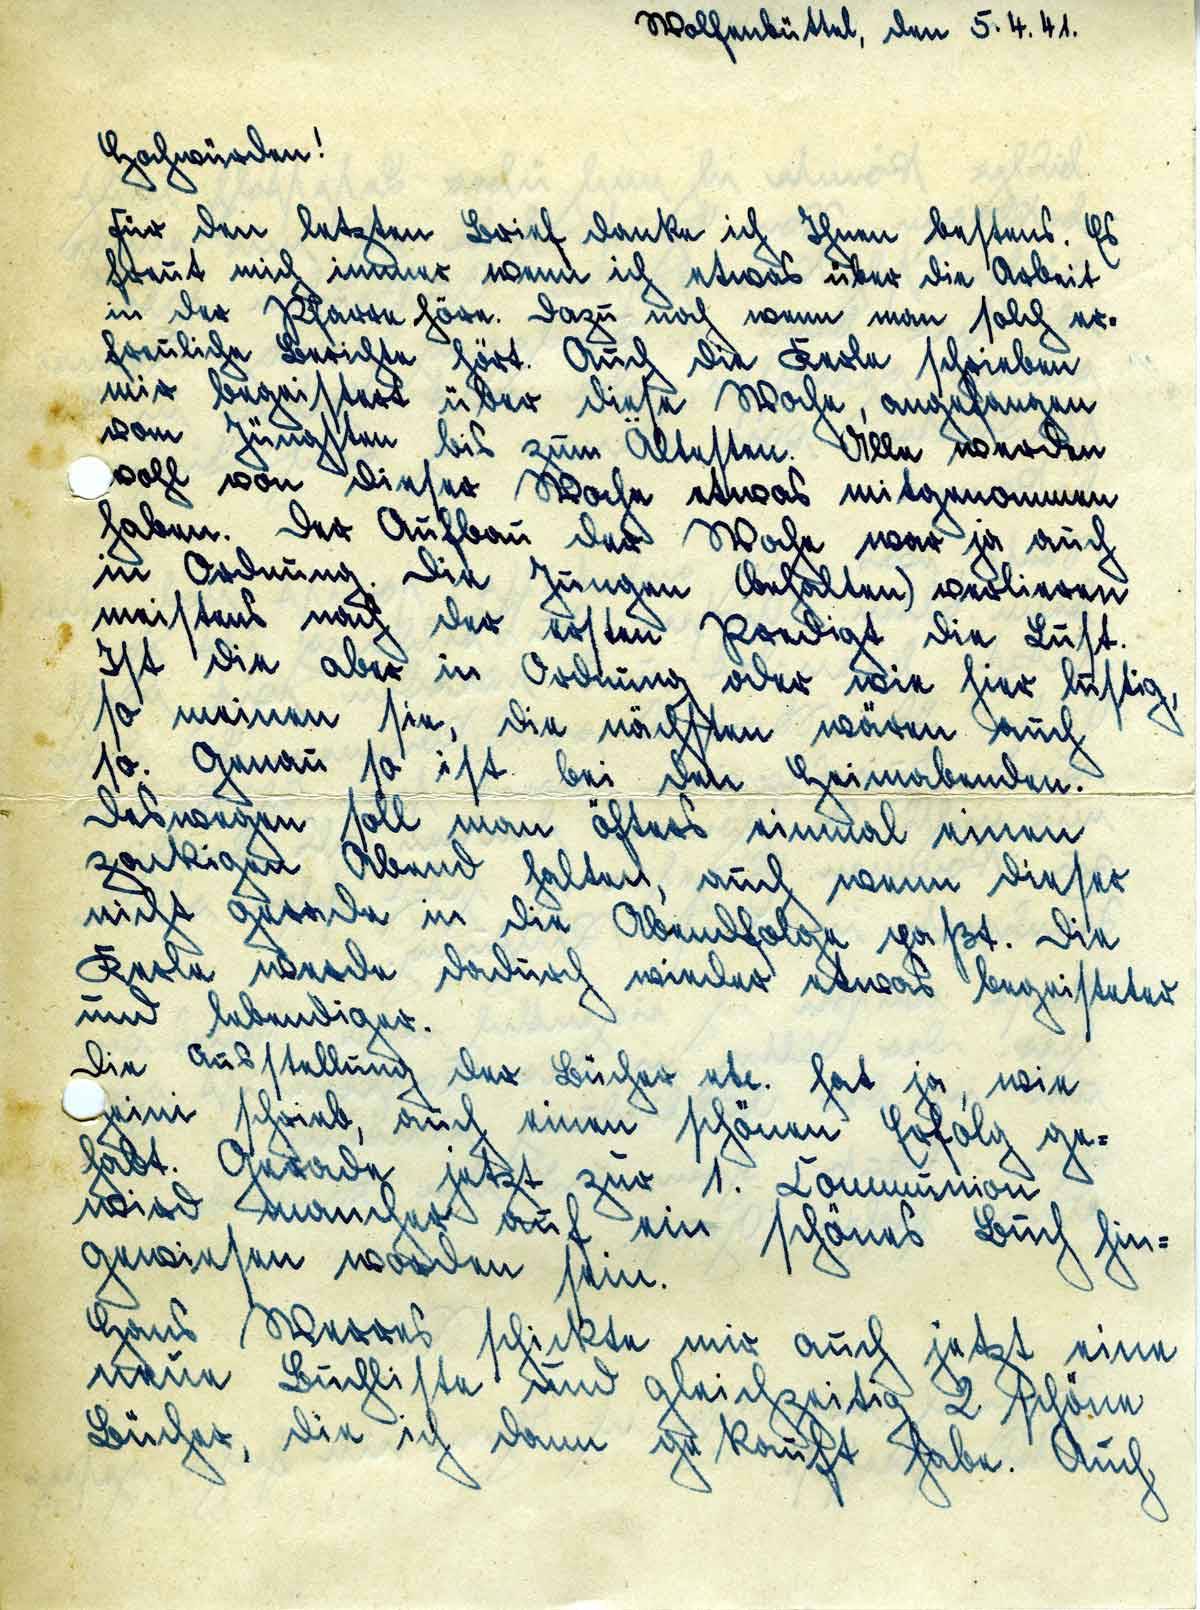 Wolfenbüttel, den 5.4.41.
Hochwürden!
Für den letzten Brief danke ich Ihnen bestens. Es
freut mich immer wenn ich etwas über die Arbeit
in der Pfarre höre. Dazu noch wenn man solch er-
freuliche Berichte hört. Auch die Kerle schrieben
mir begeistert über diese Woche, angefangen
vom Jüngsten bis zum Ältesten. Alle werden
wohl von dieser Woche etwas mitgenommen
haben. Der Aufbau der Woche war ja auch
in Ordnung. Die Jungen (behalten) verlieren
meistens nach der ersten Predigt die Lust.
Ist die aber in Ordnung oder wie hier lustig,
so meinen sie, die nächsten wären auch
so. Genau so ist bei den Heimabenden.
Deswegen soll man öfters einmal einen
zackigen Abend halten, auch wenn dieser
nicht gerade in die Abendfolge paßt. Die
Kerle werde dadurch wieder etwas begeisteter
und lebendiger.
Die Ausstellung der Bücher etc. hat ja, wie
Heini schrieb, auch einen schönen Erfolg ge=
habt. Gerade jetzt zur 1. Communion
wird mancher auf ein schönes Buch hin=
gewiesen worden sein.
Hans Werres schickte mir auch jetzt eine
neue Buchliste und gleichzeitig 2 schöne
Bücher, die ich dann gekauft habe. Auch